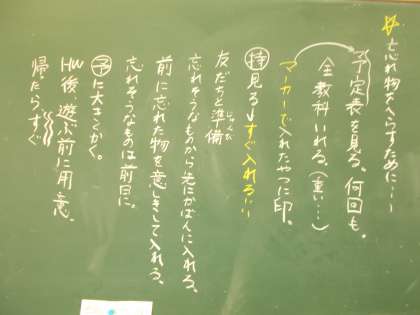 ☆忘れ物をへらすために…
予定表を見る。何回も。
全教科いれる。(重い…)
マーカーで入れたやつに印。
持 見る→すぐ入れる!!
友だちと準備
じゅんび
忘れそうなものから先にかばんに入れる、
前に忘れた物を意しきして入れる、
忘れそうなものは前日に。
予に大きくかく。
HW後、遊ぶ前に用意。
帰ったらすぐ